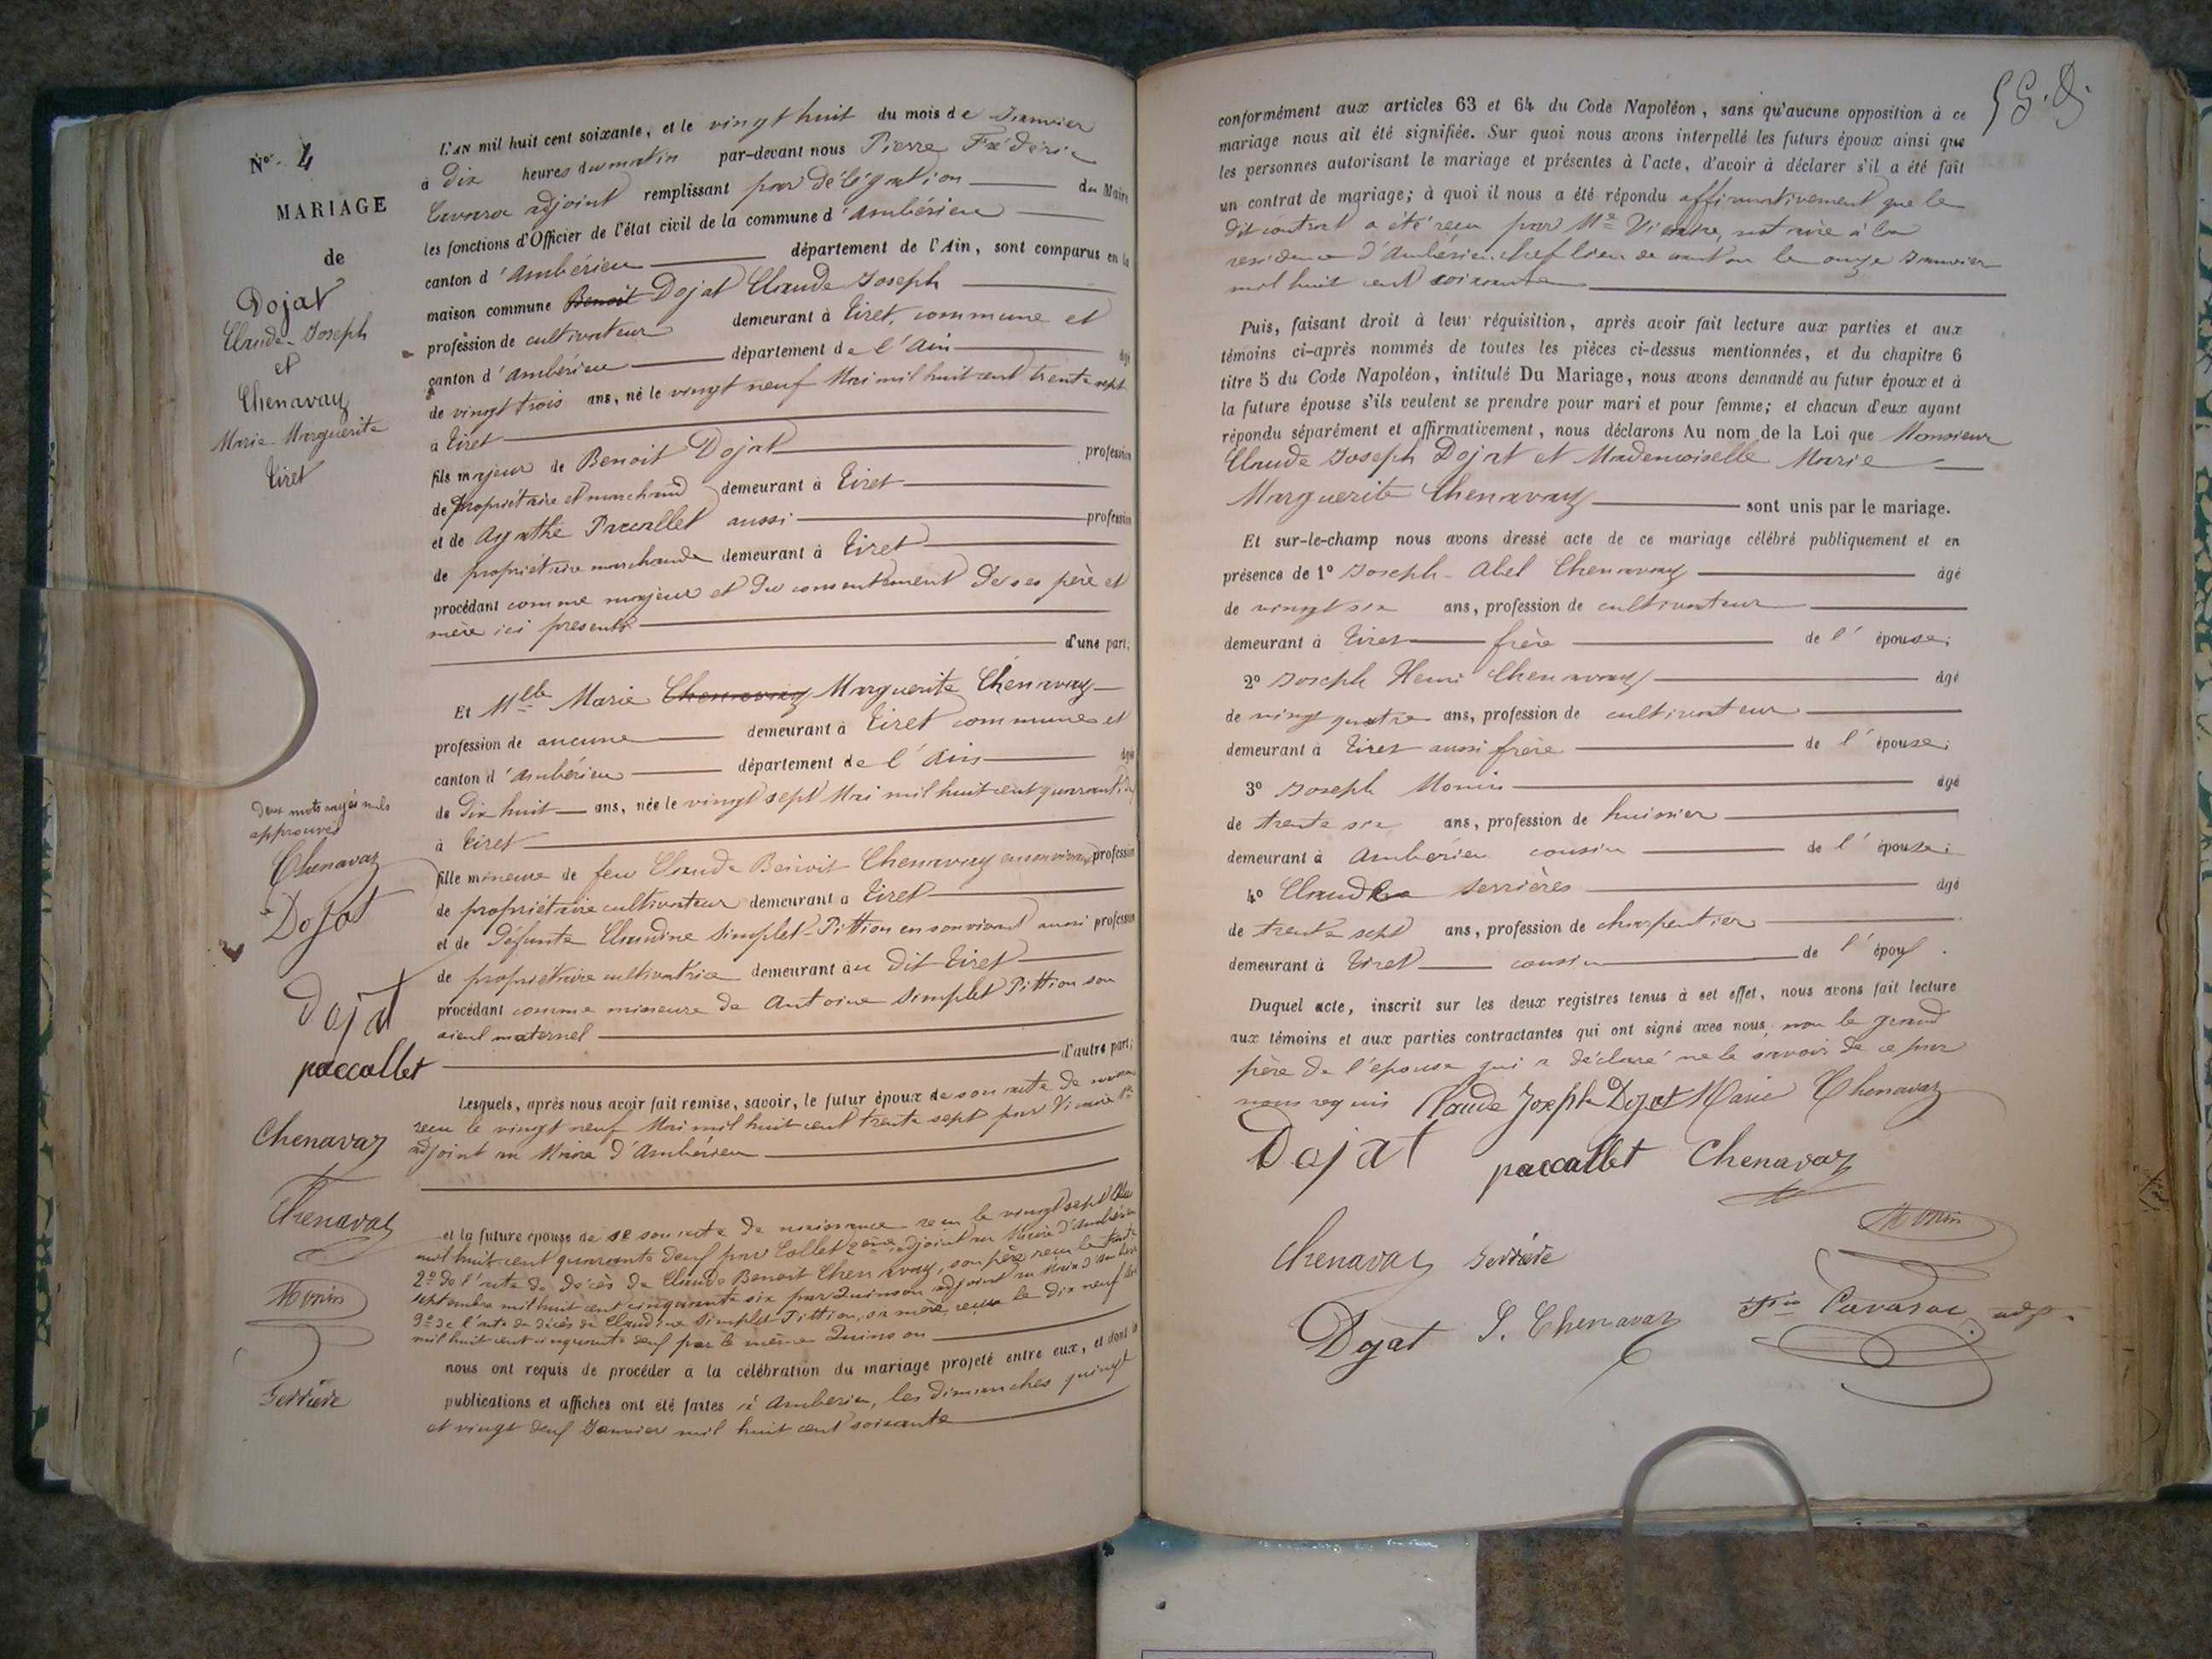 N° 4
MARIAGE
de
Dojat
Claude-Joseph
et
Chenavaz
Marie-Marguerite
Tiret
deux mots rayés nuls
approuvés
Chenavaz
Dojat
Dojat
paccallet
Chenavaz
Chenavaz
Monin
Serrière
L'AN mil huit cent soixante, et le vingt huit du mois de Janvier
à dix heures du matin par-devant nous Pierre Frédéric
adjoint remplissant par délégation du Maire
les fonctions d'Officier de l'état civil de la commune d'Ambérieu
canton d'Ambérieu département de l'Ain, sont comparus en la
maison commune Benoit Dojat Claude Joseph
profession de cultivateur demeurant à Tiret, commune et
canton d'Ambérieu département de l'Ain âgé
de vingt trois ans, né le vingt neuf Mai mil huit cent trente sept
à Tiret
fils majeur de Benoit Dojat profession
de propriétaire et marchand demeurant à Tiret
et de Agathe Paccallet aussi profession
de propriétaire marchande demeurant à Tiret
procédant comme majeur et du consentement de ses père et
mère ici présents
d'une part;
Et Mlle Marie Chenavaz Marguerite Chenavaz
profession de aucune demeurant à Tiret commune et
canton d'Ambérieu département de l'Ain âgée
de dix huit ans, née le vingt sept Mai mil huit cent quarante deux
à Tiret
fille mineure de feu Claude Benoit Chenavaz en son vivant profession
de propriétaire cultivateur demeurant à Tiret
et de défunte Claudine Simplet-Pittion en son vivant aussi profession
de propriétaire cultivatrice demeurant au dit Tiret
procédant comme mineure de Antoine Simplet Pittion son
aieul maternel
d'autre part;
Lesquels, après nous avoir fait remise, savoir, le futur époux de son acte de
reçu le vingt neuf Mai mil huit cent trente sept par
adjoint au Maire d'Ambérieu
et la future épouse de 1° son acte de naissance reçu le vingt sept Mai
mil huit cent quarante deux par Collet 2ème adjoint au Maire d'Ambérieu
2° de l'acte de décès de Claude Benoit Chenavaz, son père reçu le trente
septembre mil huit cent cinquante six par Quinson adjoint au Maire d'Ambérieu
3° de l'acte de décès de Claudine Simplet-Pittion, sa mère, reçu le dix neuf
mil huit cent cinquante deux par le même Quinson
nous ont requis de procéder à la célébration du mariage projeté entre eux, et dont les
publications et affiches ont été faites à Ambérieu, les dimanches quinze
et vingt deux Janvier mil huit cent soixante
conformément aux articles 63 et 64 du Code Napoléon, sans qu'aucune opposition à ce
mariage nous ait été signifiée. Sur quoi nous avons interpellé les futurs époux ainsi que
les personnes autorisant le mariage et présentes à l'acte, d'avoir à déclarer s'il a été fait
un contrat de mariage; à quoi il nous a été répondu affirmativement que le
dit contrat a été reçu par Me notaire à la
résidence d'Ambérieu chef lieu de canton le onze Janvier
mil huit cent soixante
Puis, faisant droit à leur réquisition, après avoir fait lecture aux parties et aux
témoins ci-après nommés de toutes les pièces ci-dessus mentionnées, et du chapitre 6
titre 5 du Code Napoléon, intitulé Du Mariage, nous avons demandé au futur époux et à
la future épouse s'ils veulent se prendre pour mari et pour femme; et chacun d'eux ayant
répondu séparément et affirmativement, nous déclarons Au nom de la Loi que Monsieur
Claude Joseph Dojat et Mademoiselle Marie
Marguerite Chenavaz sont unis par le mariage.
Et sur-le-champ nous avons dressé acte de ce mariage célébré publiquement et en
présence de 1° Joseph-Abel Chenavaz âgé
de vingt six ans, profession de cultivateur
demeurant à Tiret frère de l'épouse;
2° Joseph Henri Chenavaz âgé
de vingt quatre ans, profession de cultivateur
demeurant à Tiret aussi frère de l'épouse;
3° Joseph Monin âgé
de trente six ans, profession de huissier
demeurant à Ambérieu cousin de l'épouse;
4° Claude Serrières âgé
de trente sept ans, profession de charpentier
demeurant à Tiret cousin de l'époux.
Duquel acte, inscrit sur les deux registres tenus à cet effet, nous avons fait lecture
aux témoins et aux parties contractantes qui ont signé avec nous, non le grand
père de l'épouse qui a déclaré ne le savoir de ce par
nous requis Claude Joseph Dojat Marie Chenavaz
Dojat paccallet Chenavaz
Monin
Chenavaz Serrière
Dojat J. Chenavaz adj.